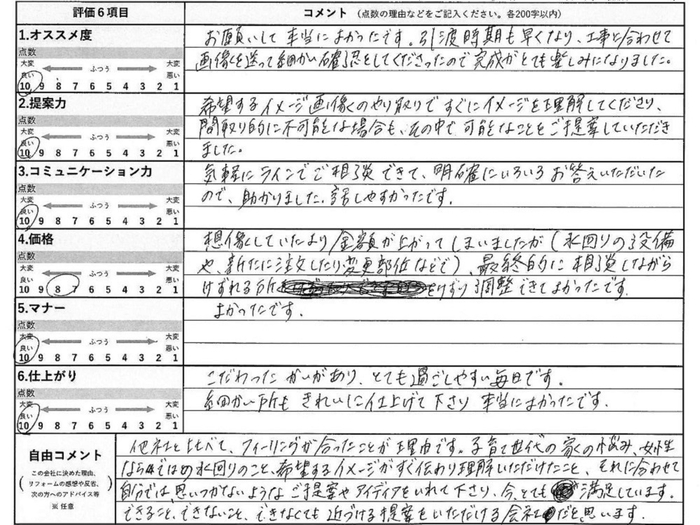 評価6項目 コメント（点数の理由などをご記入ください。各200字以内）
1.オススメ度
点数
大変良い ふつう 大変悪い
10 9 8 7 6 5 4 3 2 1
お願いして本当によかったです。引渡時期も早くなり、工事と合わせて
画像を送って細かい確認をしてくださったので完成がとても楽しみになりました。
2.提案力
点数
大変良い ふつう 大変悪い
10 9 8 7 6 5 4 3 2 1
希望するイメージ画像のやり取りですぐにイメージを理解してくださり、
間取り的に不可能な場合も、その中で可能なことをご提案していただき
ました。
3.コミュニケーション力
点数
大変良い ふつう 大変悪い
10 9 8 7 6 5 4 3 2 1
気軽にラインでご相談できて、明確にいろいろお答えいただいた
ので、助かりました。話しやすかったです。
4.価格
点数
大変良い ふつう 大変悪い
10 9 8 7 6 5 4 3 2 1
想像していたより金額が上がってしまいましたが（水回りの設備
や、新たに注文したり変更部位などで）、最終的に相談しながら
けずれる所をけずり調整できてよかったです。
5.マナー
点数
大変良い ふつう 大変悪い
10 9 8 7 6 5 4 3 2 1
よかったです。
6.仕上がり
点数
大変良い ふつう 大変悪い
10 9 8 7 6 5 4 3 2 1
こだわったかいがあり、とても過ごしやすい毎日です。
細かい所もきれいに仕上げて下さり本当によかったです。
自由コメント
（この会社に決めた理由、
リフォームの感想や反省、
次の方へのアドバイス等
※任意）
他社と比べて、フィーリングが合ったことが理由です。子育て世代の家の悩み、女性
ならではの水回りのこと、希望するイメージがすぐ伝わり理解いただけたこと、それに合わせて
自分では思いつかないようなご提案やアイディアをいれて下さり、今、とても満足しています。
できること、できないこと、できなくても近づける提案をいただける会社だと思います。